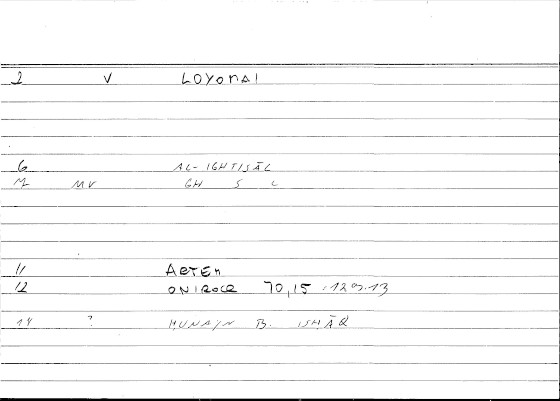 2 V LOYOMAI
6 AL-IGHTISĀL
M MV GH S L
11 ARTEM
12 ONIROCR 70,15 - 120.13
14 ? HUNAYN B. ISHĀQ